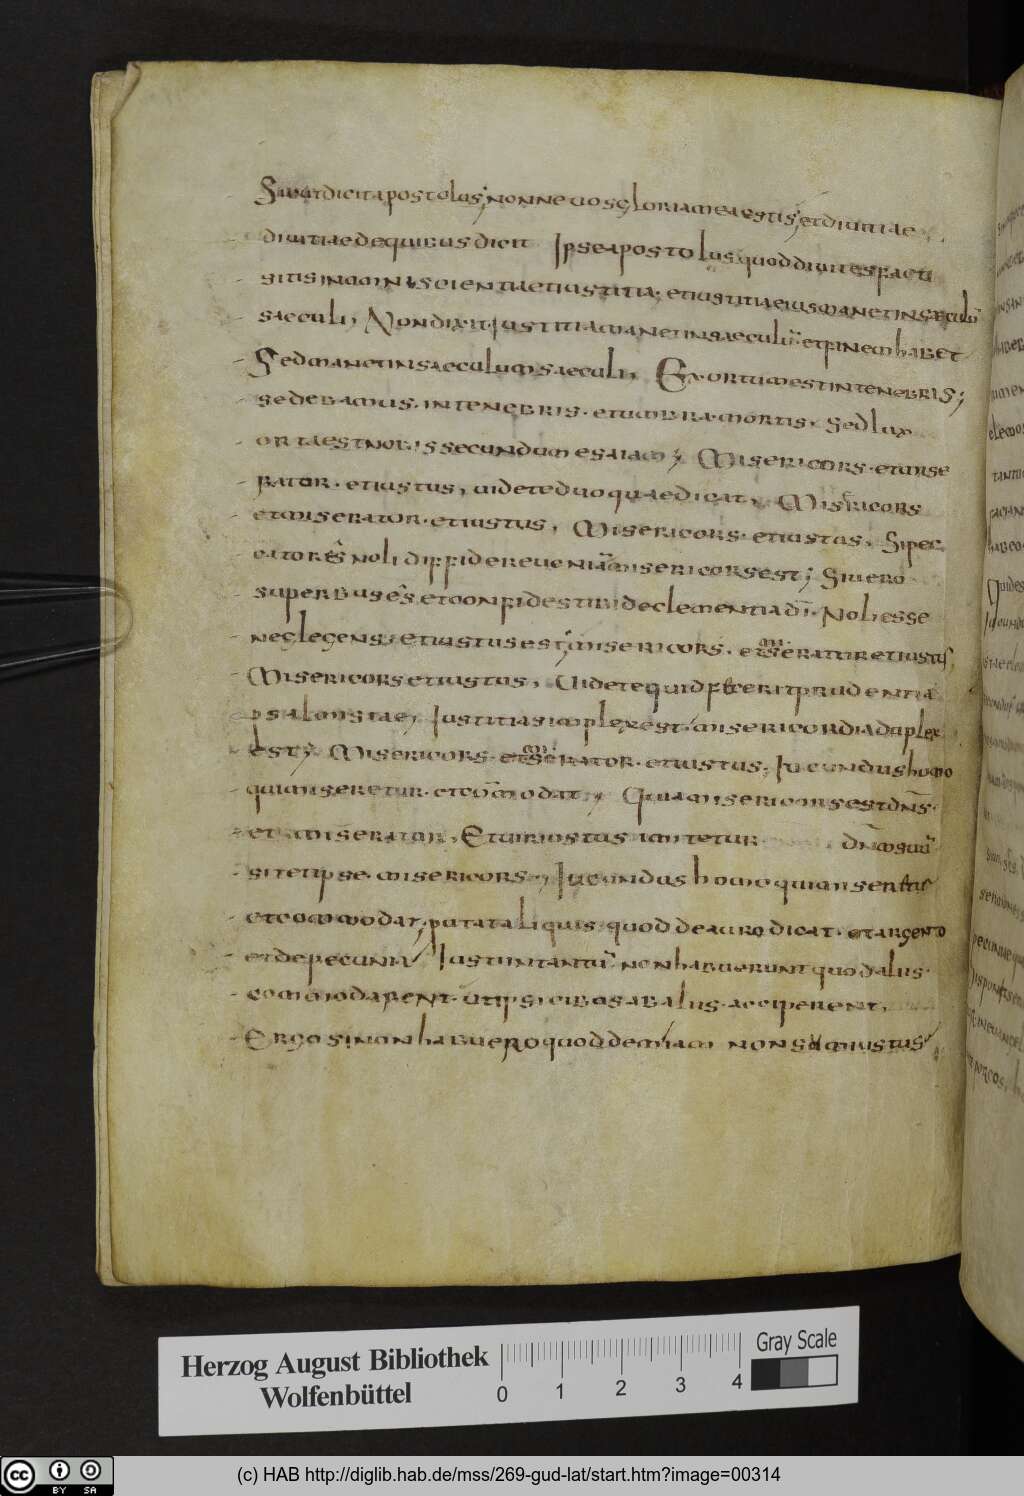 Sicut dicit apostolus; nonne vos gloria mea estis; et divitiae
divitiae de quibus dicit Ipse apostolus quod divites facti
sitis in omni scientia et iustitia; et iustitia eius manet in saeculū
saeculi, Non dixit iustitia manet in saeculū et finem habet
Sed manet in saeculum saeculi, Exortum est in tenebris;
sedebamus in tenebris et umbra mortis sed lux
orta est nobis secundum esaiam; Misericors et mise
rator et iustus, videte duo quae dicat, Misericors
et miserator et iustus, Misericors et iustus, Si pec
cator es noli diffidere veniā misericors est; Si vero
superbus es et confides tibi de clementia dī noli esse
neglegens; et iustus est; misericors et miserator et iustus
Misericors et iustus, Videte quid fecerit prudentia
psalmistae, Iustitia simplex est misericordia duplex
est; Misericors et miserator et iustus, Iucundus homo
qui miseretur et cōmodat, Quia misericors est dns
et miserator, Et vir iustus imitetur dnm suū
sit et ipse misericors, Iucundus homo qui miseretur
et commodat, putat aliquis quod de auro dicat et argento
et de pecunia, Iusti in tantū non habuerunt quod alus
commodarent ut ipsi cibos ab alus acciperent,
Ergo si non habuero quod dem iam non sum iustus
Herzog August Bibliothek
Wolfenbüttel
0 1 2 3 4
Gray Scale
cc BY SA
(c) HAB http://diglib.hab.de/mss/269-gud-lat/start.htm?image=00314